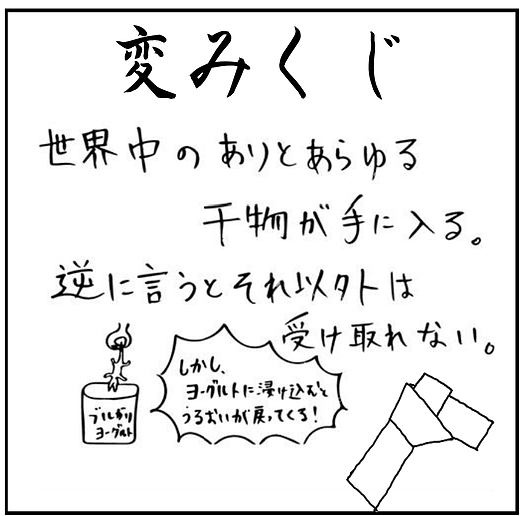 変みくじ
世界中のありとあらゆる
干物が手に入る。
逆に言うとそれ以外は
受け取れない。
しかし、
ヨーグルトに浸け込むと
うるおいが戻ってくる!
ブルガリ
ヨーグルト